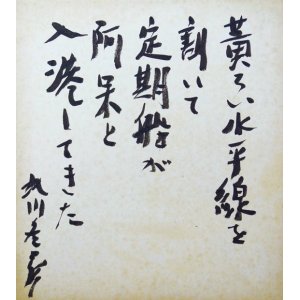 黄ろい水平線を
割いて
定期船が
阿呆と
入港してきた